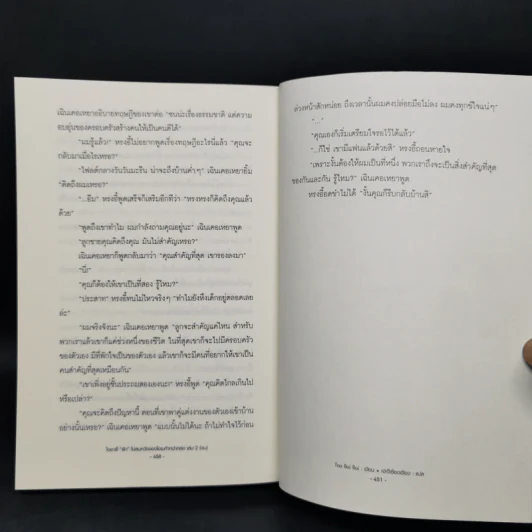 เฉินเคอเหยาอธิบายทฤษฎีของเขาต่อ "ซนน่ะเรื่องธรรมชาติ แต่ความ
อบอุ่นของครอบครัวสร้างคนให้เป็นคนดีได้"
"ผมรู้แล้ว!" หรงอี้ไม่อยากพูดเรื่องทฤษฎีอะไรนี่แล้ว "คุณจะ
กลับมาเมื่อไรเหรอ?"
"ไฟลต์กลางวันวันมะรืน น่าจะถึงบ้านค่ำๆ" เฉินเคอเหยายิ้ม
"คิดถึงผมเหรอ?"
"...อืม" หรงอี้พูดเสร็จก็เสริมอีกทีว่า "หรงหรงก็คิดถึงคุณแล้ว
ด้วย"
"พูดถึงเขาทำไม ผมกำลังถามคุณอยู่นะ" เฉินเคอเหยาพูด
"ลูกชายคุณคิดถึงคุณ มันไม่สำคัญเหรอ?"
เฉินเคอเหยาก็พูดกลับมาว่า "คุณสำคัญที่สุด เขารองลงมา"
"นี่!"
"คุณก็ต้องให้เขาเป็นที่สอง รู้ไหม?"
"ประสาท" หรงอี้ทนไม่ไหวจริงๆ "ทำไมยังหึงเด็กอยู่ตลอดเลย
ล่ะ"
"ผมจริงจังนะ" เฉินเคอเหยาพูด "ลูกจะสำคัญแค่ไหน สำหรับ
พวกเราแล้วเขาก็แค่ช่วงหนึ่งของชีวิต ในที่สุดเขาก็จะไปมีครอบครัว
ของตัวเอง มีที่พักใจเป็นของตัวเอง แล้วเขาก็จะมีคนที่อยากให้เขาเป็น
คนสำคัญที่สุดเหมือนกัน"
"เขาเพิ่งอยู่ชั้นประถมสองเองนะ!" หรงอี้พูด "คุณคิดไกลเกินไป
หรือเปล่า?"
"คุณจะคิดถึงปัญหานี้ ตอนที่เขาพาคู่แต่งงานของตัวเองเข้าบ้าน
อย่างนั้นเหรอ?" เฉินเคอเหยาพูด "แบบนั้นไม่ได้นะ ถ้าไม่ทำใจไว้ก่อน
- 480 -
ล่วงหน้าสักหน่อย ถึงเวลานั้นผมคงปล่อยมือไม่ลง ผมคงทุกข์ใจแน่ๆ"
"..."
"คุณเองก็เริ่มเตรียมใจรอไว้ได้แล้ว"
"...ก็ใช่ เขามีแฟนแล้วด้วยสิ" หรงอี้ถอนหายใจ
"เพราะงั้นต้องให้ผมเป็นที่หนึ่ง พวกเราถึงจะเป็นสิ่งสำคัญที่สุด
ของกันและกัน รู้ไหม?" เฉินเคอเหยาพูด
หรงอี้อดขำไม่ได้ "งั้นคุณก็รีบกลับบ้านสิ"
- 481 -